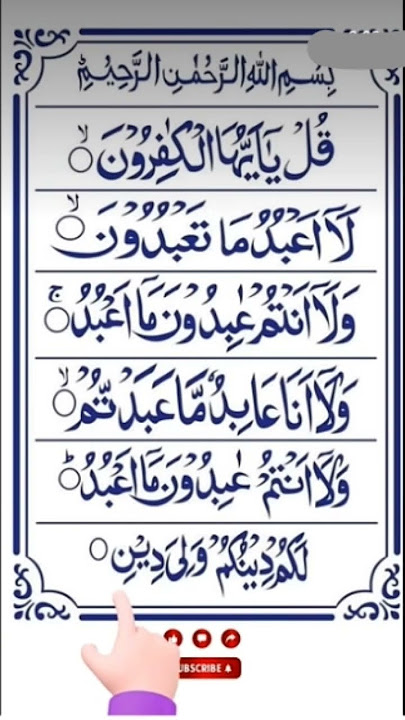 بِسْمِ اللهِ الرَّحْمٰنِ الرَّحِيْمِ
قُلْ يٰۤاَيُّهَا الْكٰفِرُوْنَ ۙ
لَاۤ اَعْبُدُ مَا تَعْبُدُوْنَ ۙ
وَلَاۤ اَنْتُمْ عٰبِدُوْنَ مَاۤ اَعْبُدُ ۚ
وَلَاۤ اَنَا عَابِدٌ مَّا عَبَدْتُّمْ ۙ
وَلَاۤ اَنْتُمْ عٰبِدُوْنَ مَاۤ اَعْبُدُ ؕ
لَكُمْ دِيْنُكُمْ وَلِيَ دِيْنِ
UBSCRIBE